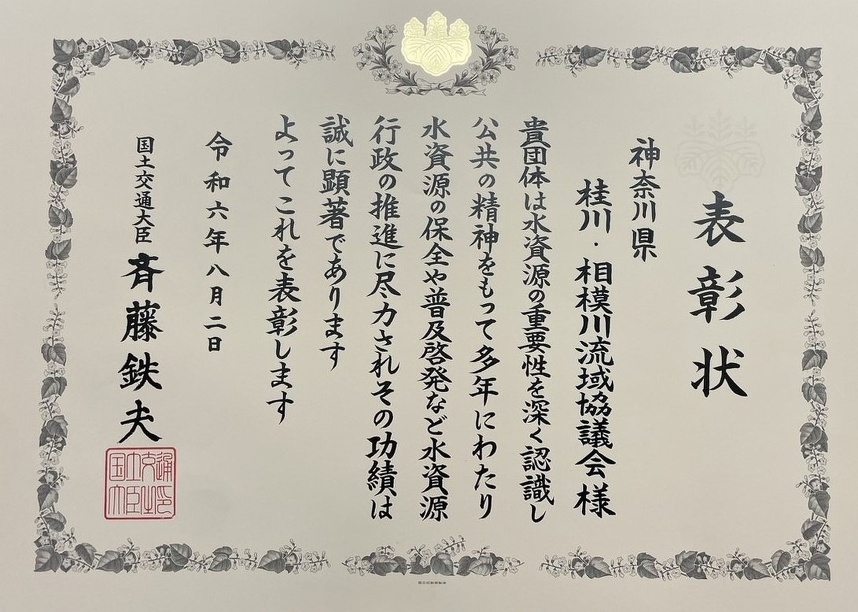 表彰状
神奈川県
桂川・相模川流域協議会様
貴団体は水資源の重要性を深く認識し
公共の精神をもって多年にわたり
水資源の保全や普及啓発など水資源
行政の推進に尽力されその功績は
誠に顕著であります
よってこれを表彰します
令和六年八月二日
国土交通大臣 斉藤鉄夫